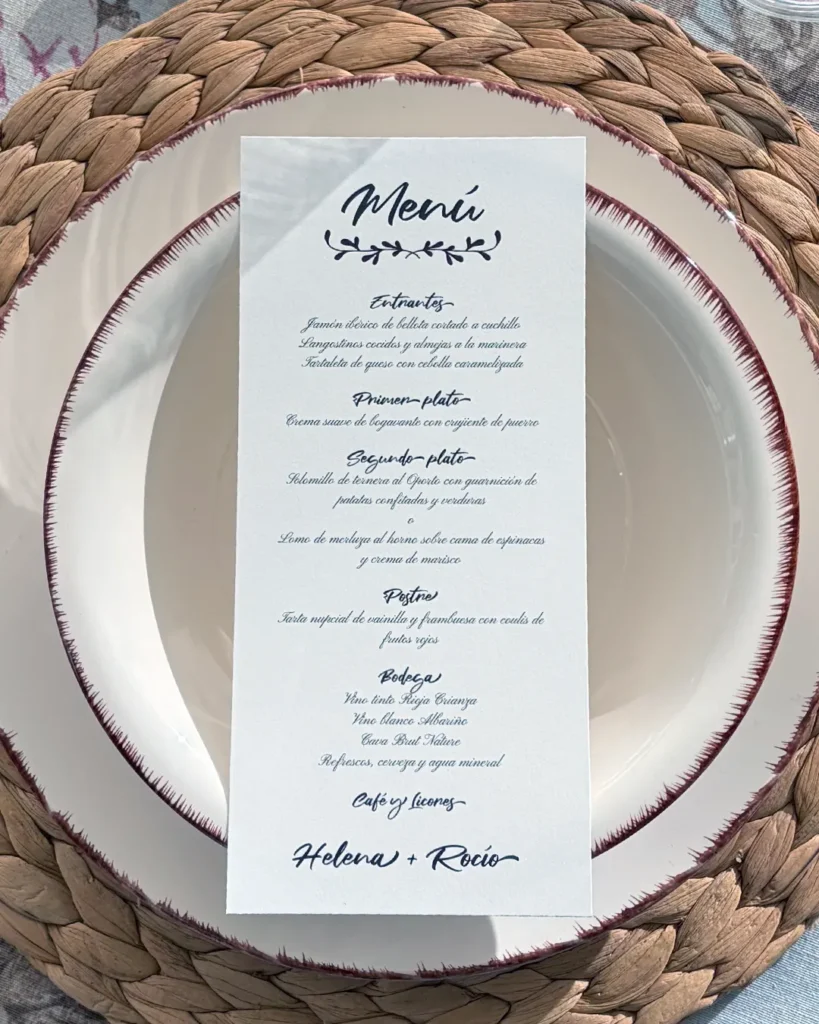 Menú
Entrantes
Jamón ibérico de bellota cortado a cuchillo
Langostinos cocidos y almejas a la marinera
Tartaleta de queso con cebolla caramelizada
Primer plato
Crema suave de bogavante con crujiente de puerro
Segundo plato
Solomillo de ternera al Oporto con guarnición de
patatas confitadas y verduras
o
Lomo de merluza al horno sobre cama de espinacas
y crema de marisco
Postre
Tarta nupcial de vainilla y frambuesa con coulis de
frutos rojos
Bodega
Vino tinto Rioja Crianza
Vino blanco Albariño
Cava Brut Nature
Refrescos, cerveza y agua mineral
Café y Licores
Helena + Rocío